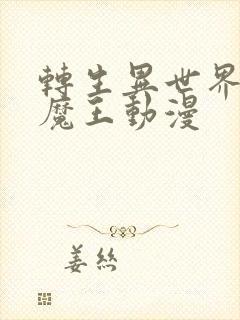 轉生異世界
魔王動漫
姜絲